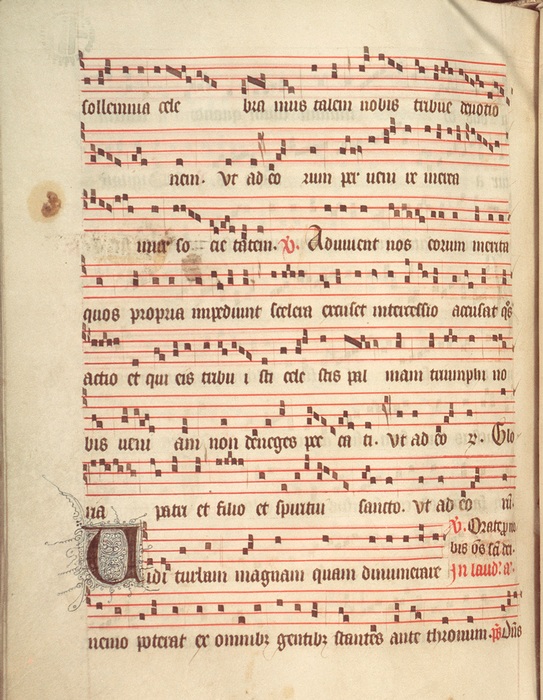 sollennia cele bra mus talem nobis tribue deuotio
nem. Vt ad eo rum per ueni re merea
mur so cie tatem. V. Adiuuent nos eorum merita
quos propria impediunt scelera excuset intercessio accusat qs
actio et qui eis tribu i sti cele stis pal mam triumphi no
bis ueni am non deneges pec ca ti. Vt ad eo r. Glo
ria patri et filio et spiritui sancto. Vt ad eo
V. Orate
bis os sci dei.
Uidi turbam magnam quam dinumerare In laud. a.
nemo poterat ex omnibz gentibz stantes ante thronum. ps Dns